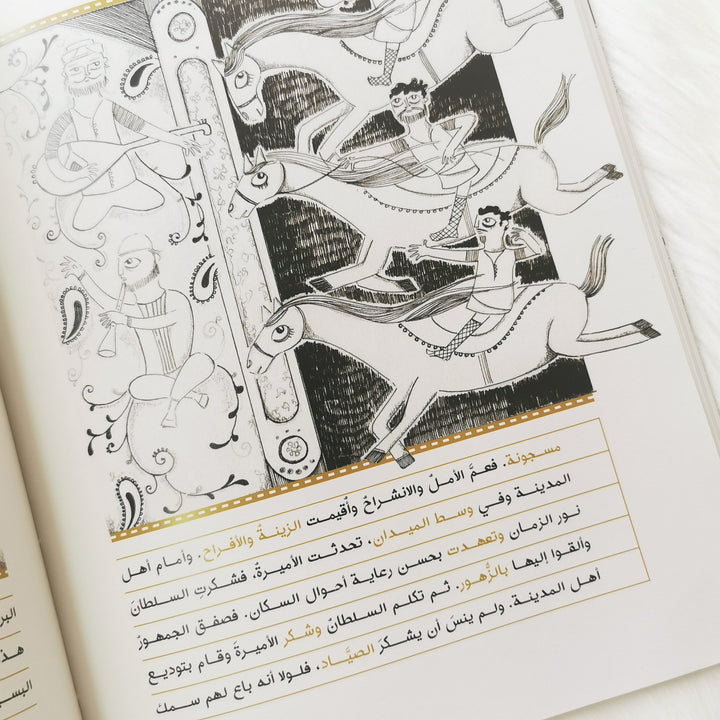 مسجونة. فعمَّ الأملُ والانشراحُ وأقيمت الزينةُ والأفراح. وأمام أهل
المدينة وفي وسط الميدان، تحدثت الأميرةُ، فشكرتِ السلطانَ
نور الزمان وتعهدت بحسن رعاية أحوال السكان. فصفق الجمهورُ
وألقوا إليها بالزُّهور. ثم تكلم السلطانُ وشكر الأميرةَ وقام بتوديع
أهل المدينة. ولم ينسَ أن يشكرَ الصيَّاد، فلولا أنه باع لهم سمكَ
هذ
البس